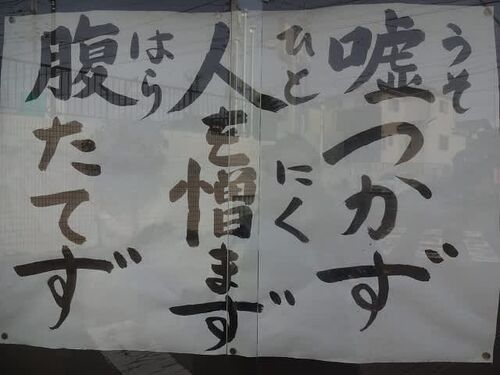 嘘つかず
うそ
人を憎まず
ひと にく
腹たてず
はら